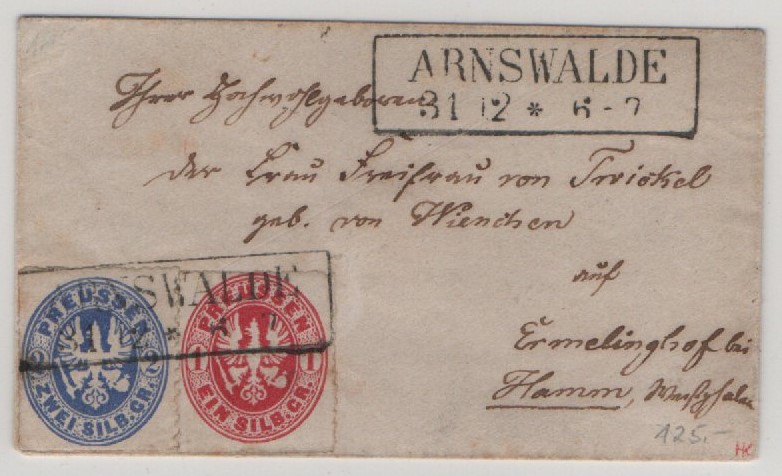 ARNSWALDE
31 12 * 6-7
Ihrer Hochwohlgeboren
der Frau Freifrau von Twickel
geb. von Wienchen
auf
Ermelinghof bei
Hamm, Westphalen
125.-
HK
ARNSWALDE
31 12 * 6-7
PREUSSEN
2 2
ZWEI SILB.GR.
PREUSSEN
1 1
EIN SILB.GR.